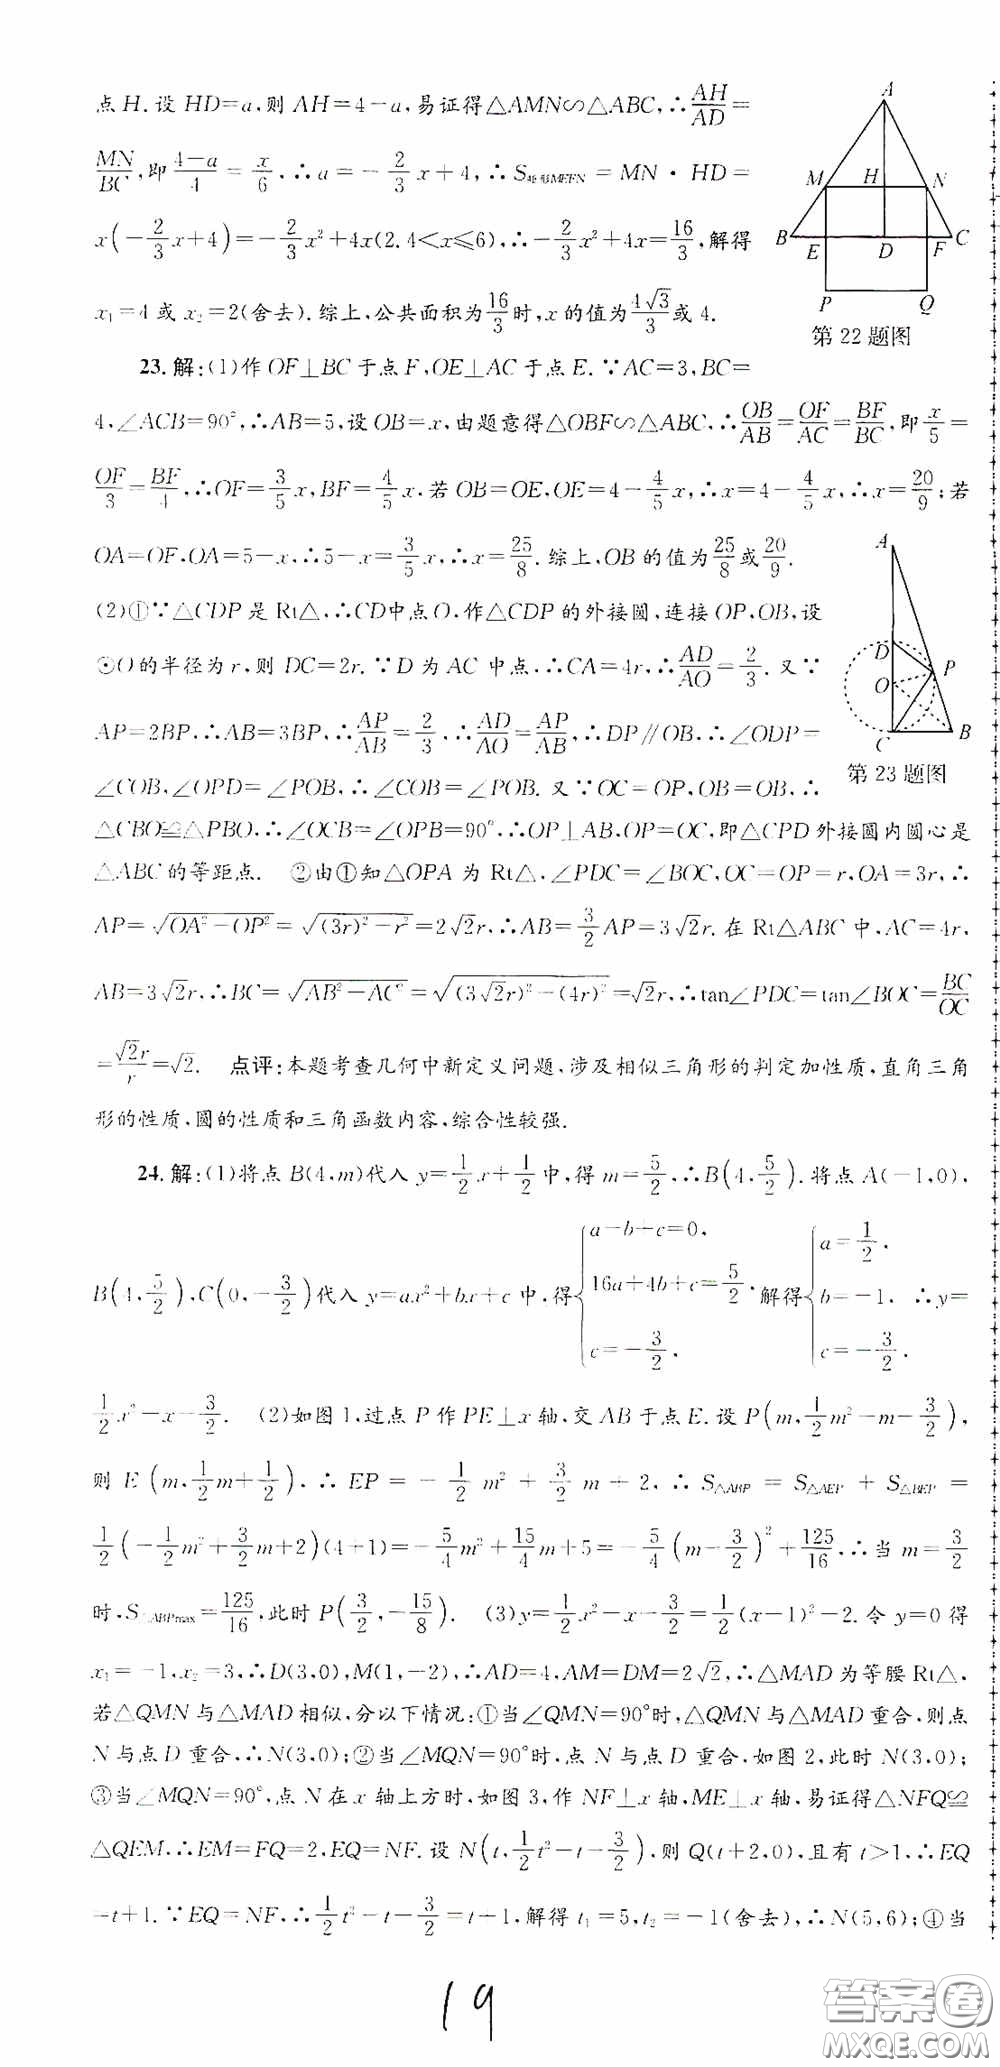 点H.设HD=a,则AH=4-a,易证得△AMN∽△ABC,∴AH/AD=
MN/BC,即(4-a)/4=x/6,∴a=-2/3x+4,∴S矩形MEFN=MN·HD=
x(-2/3x+4)=-2/3x²+4x(2.4<x≤6),∴-2/3x²+4x=16/3,解得
x₁=4或x₂=2(舍去).综上,公共面积为16/3时,x的值为4√3/3或4.
A
M H N
B E D F C
P Q
第22题图
23.解:(1)作OF⊥BC于点F,OE⊥AC于点E.∵AC=3,BC=
4,∠ACB=90°,∴AB=5,设OB=x,由题意得△OBF∽△ABC,∴OB/AB=OF/AC=BF/BC,即x/5=
OF/3=BF/4,∴OF=3/5x,BF=4/5x.若OB=OE,OE=4-4/5x,∴x=4-4/5x,∴x=20/9;若
OA=OF,OA=5-x,∴5-x=3/5x,∴x=25/8.综上,OB的值为25/8或20/9.
(2)①∵△CDP是Rt△,∴CD中点O,作△CDP的外接圆,连接OP,OB,设
⊙O的半径为r,则DC=2r.∵D为AC中点,∴CA=4r,∴AD/AO=2/3.又∵
AP=2BP,∴AB=3BP,∴AP/AB=2/3,∴AD/AO=AP/AB,∴DP∥OB,∴∠ODP=
∠COB,∠OPD=∠POB,∴∠COB=∠POB.又∵OC=OP,OB=OB,∴
△CBO≌△PBO,∴∠OCB=∠OPB=90°,∴OP⊥AB,OP=OC,即△CPD外接圆内圆心是
△ABC的等距点. ②由①知△OPA为Rt△,∠PDC=∠BOC,OC=OP=r,OA=3r,∴
A
D
P
O
C B
第23题图
AP=√(OA²-OP²)=√((3r)²-r²)=2√2r,∴AB=3/2AP=3√2r.在Rt△ABC中,AC=4r,
AB=3√2r,∴BC=√(AB²-AC²)=√((3√2r)²-(4r)²)=√2r,∴tan∠PDC=tan∠BOC=BC/OC
=√2r/r=√2. 点评:本题考查几何中新定义问题,涉及相似三角形的判定加性质,直角三角
形的性质,圆的性质和三角函数内容,综合性较强.
24.解:(1)将点B(4,m)代入y=1/2x+1/2中,得m=5/2,∴B(4,5/2).将点A(-1,0),
B(4,5/2),C(0,-3/2)代入y=ax²+bx+c中,得{a-b+c=0, 16a+4b+c=5/2, c=-3/2, 解得{a=1/2, b=-1, c=-3/2, ∴y=
1/2x²-x-3/2. (2)如图1,过点P作PE⊥x轴,交AB于点E.设P(m,1/2m²-m-3/2),
则E(m,1/2m+1/2),∴EP=-1/2m²+3/2m+2,∴S△ABP=S△AEP+S△BEP=
1/2(-1/2m²+3/2m+2)(4+1)=-5/4m²+15/4m+5=-5/4(m-3/2)²+125/16,∴当m=3/2
时,S△ABPmax=125/16,此时P(3/2,-15/8). (3)y=1/2x²-x-3/2=1/2(x-1)²-2.令y=0得
x₁=-1,x₂=3,∴D(3,0),M(1,-2),∴AD=4,AM=DM=2√2,∴△MAD为等腰Rt△,
若△QMN与△MAD相似,分以下情况:①当∠QMN=90°时,△QMN与△MAD重合,则点
N与点D重合,∴N(3,0);②当∠MQN=90°时,点N与点D重合,如图2,此时N(3,0);
③当∠MQN=90°,点N在x轴上方时,如图3,作NF⊥x轴,ME⊥x轴,易证得△NFQ≌
△QEM,∴EM=FQ=2,EQ=NF.设N(t,1/2t²-t-3/2),则Q(t+2,0),且有t>1,∴EQ
=t+1.∵EQ=NF,∴1/2t²-t-3/2=t+1,解得t₁=5,t₂=-1(舍去),∴N(5,6);④当
19
答案卷
MXQE.COM